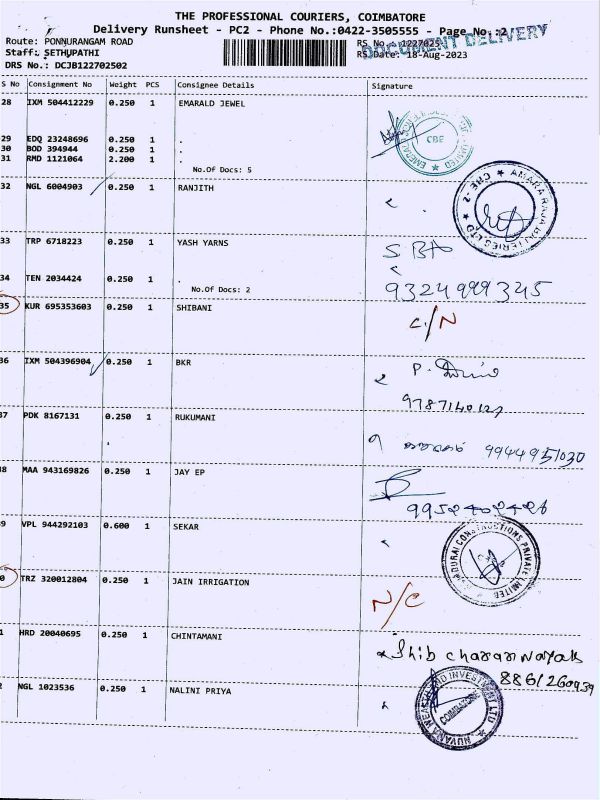 THE PROFESSIONAL COURIERS, COIMBATORE
Delivery Runsheet - PC2 - Phone No.:0422-3505555 - Page No.:2
DOCUMENT DELIVERY
Route: PONNURANGAM ROAD
RS No.: 1227025
Staff: SETHUPATHI
RS Date: 18-Aug-2023
DRS No.: DCJB122702502
S No Consignment No Weight PCS Consignee Details Signature
28 IXM 504412229 0.250 1 EMARALD JEWEL
CBE
29 EDQ 23248696 0.250 1 .
30 BOD 394944 0.250 1 .
31 RMD 1121064 2.200 1 .
No.Of Docs: 5
32 NGL 6004903 0.250 1 RANJITH
AMARA RAJA BATTERIES LTD ★ CBE - 2 ★
33 TRP 6718223 0.250 1 YASH YARNS
SBA
34 TEN 2034424 0.250 1 .
No.Of Docs: 2
9324999345
35 KUR 695353603 0.250 1 SHIBANI
C/N
36 IXM 504396904 0.250 1 BKR
P.
9787140127
37 PDK 8167131 0.250 1 RUKUMANI
9944951030
38 MAA 943169826 0.250 1 JAY EP
9952402426
39 VPL 944292103 0.600 1 SEKAR
DURAI CONSTRUCTIONS PRIVATE LIMITED ★
0 TRZ 320012804 0.250 1 JAIN IRRIGATION
N/C
1 HRD 20040695 0.250 1 CHINTAMANI
Shib charan Nayak
8861260939
2 NGL 1023536 0.250 1 NALINI PRIYA
NUVAMA WEALTH AND INVESTMENT LTD ★
COIMBATORE